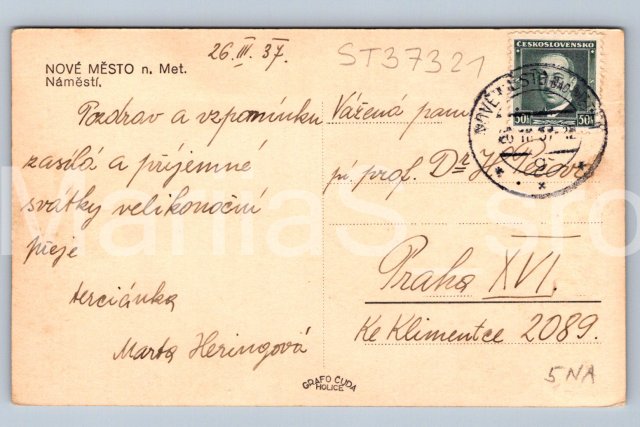 26. III. 37.
ST37321
NOVÉ MĚSTO n. Met.
Náměstí.
Pozdrav a vzpomínku
zasílá a příjemné
svátky velikonoční
přeje
terciánka
Marta Heringová
ČESKOSLOVENSKO
50h 50h
NOVÉ MĚSTO NAD
Vážená paní
pí. prof. Dr
Praha XVI.
Ke Klimentce 2089.
GRAFO ČUDA
HOLICE
5NA